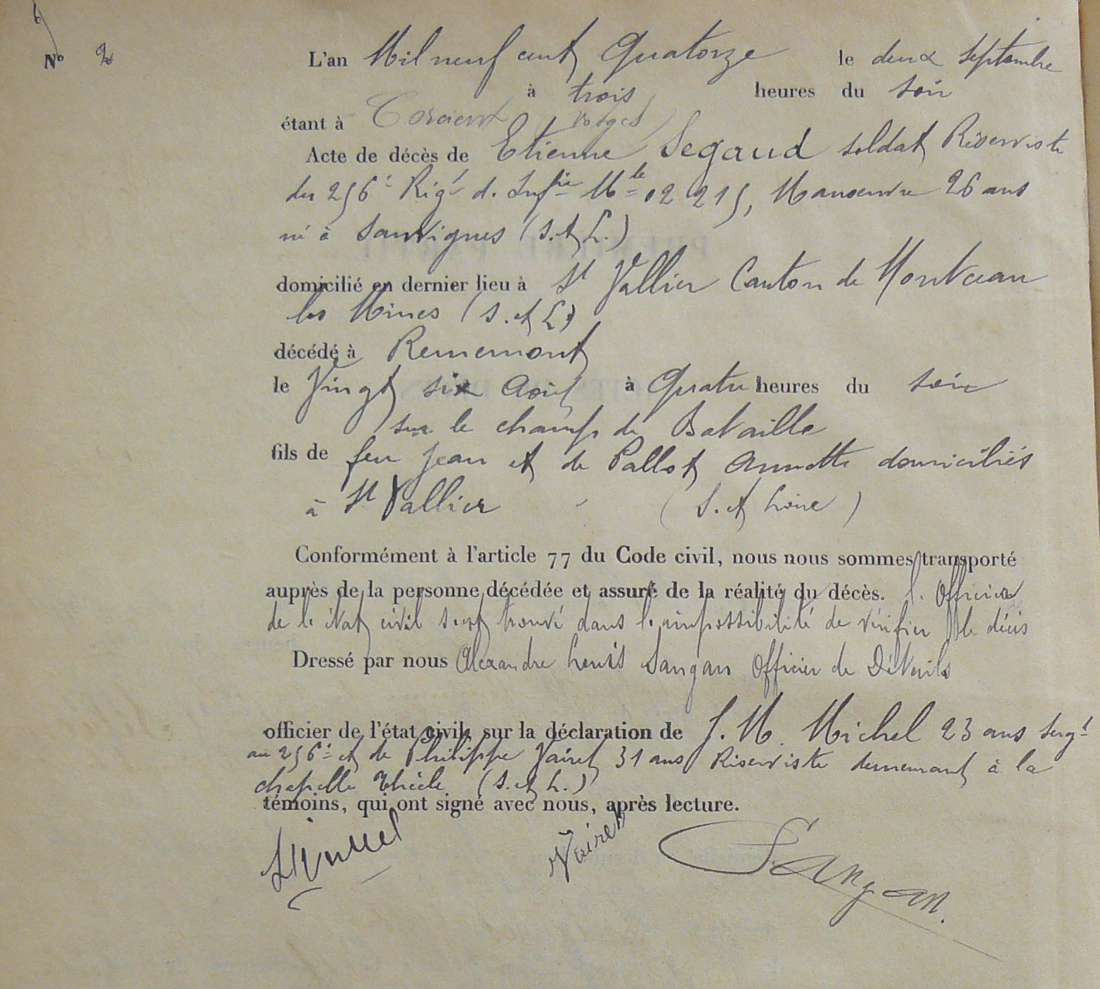 N° 2
L'an Mil neuf cent Quatorze le deux septembre
à trois heures du soir
étant à Corcieux Vosges
Acte de décès de Etienne Segaud soldat Réserviste
du 256e Régt d. Infie Mle 02215, Manoeuvre 26 ans
né à Sanvignes (S. et L.)
domicilié en dernier lieu à St Vallier Canton de Montceau
les Mines (S. et L.)
décédé à Rememont
le Vingt six Août à Quatre heures du soir
sur le champ de Bataille
fils de feu Jean et de Pallot Annette domiciliés
à St Vallier (S. et Loire)
Conformément à l'article 77 du Code civil, nous nous sommes transporté
auprès de la personne décédée et assuré de la réalité du décès. l. Officier
de l'état civil s'est trouvé dans l'impossibilité de vérifier le décès
Dressé par nous Alexandre Louis Sangan Officier de Détails
officier de l'état civile sur la déclaration de J. M. Michel 23 ans Sergt
au 256e et de Philippe Vairet 31 ans Réserviste demeurant à la
chapelle Thècle (S. et L.)
témoins, qui ont signé avec nous, après lecture.
Vairet Sangan.